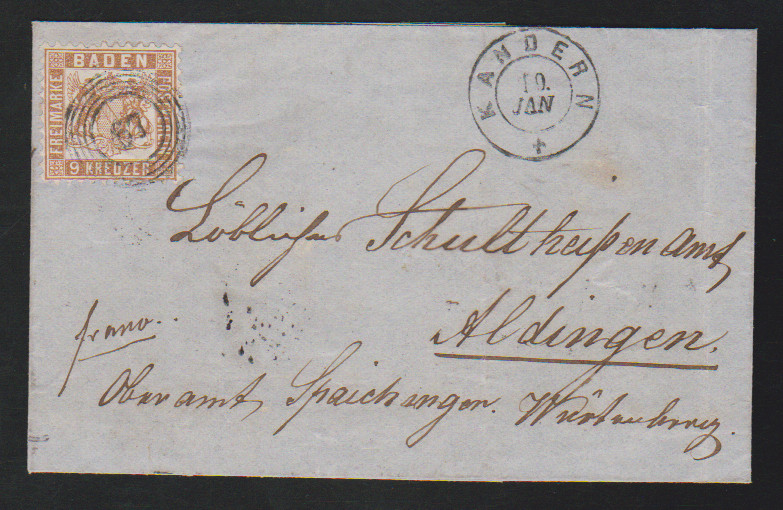 BADEN
FREIMARKE
9 KREUZER
KANDERN
10.
JAN
Löbliches Schultheißenamt
Aldingen.
franco.
Oberamt Spaichingen. Würtenberg.